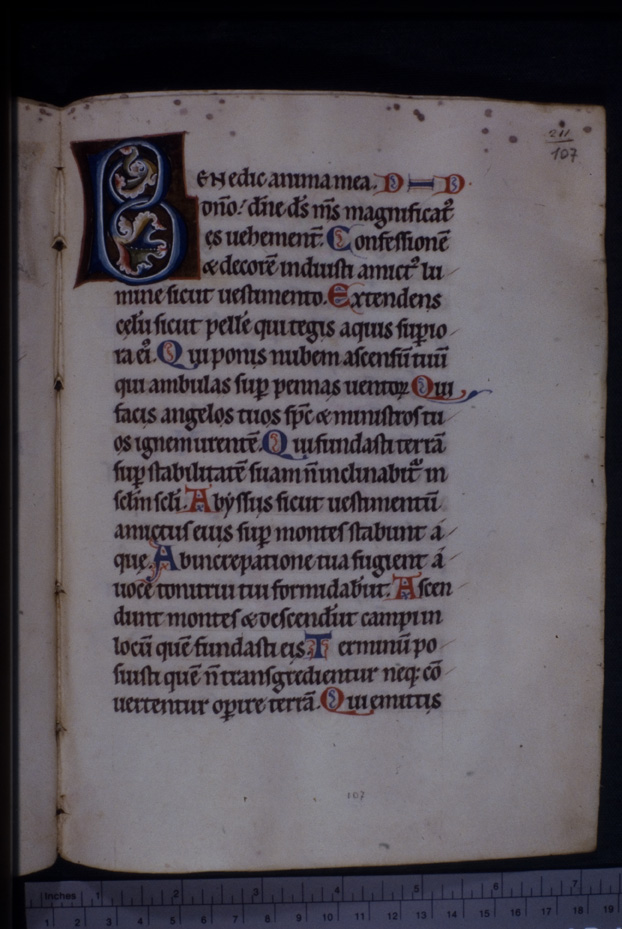 211
107
BENedic anima mea. D D
dño! dñe ds ms magnificat᷒
ęs uehement̄. Confessionē
& decorē induisti amict᷒ lu
mine sicut uestimento. Extendens
cęlū sicut pellē qui tegis aquis sup̱io
ra ei᷒. Qui ponis nubem ascensū tuū
qui ambulas sup̱ pennas uentoꝝ Qui
facis angelos tuos sp̄c & ministros tu
os ignem urentē. Qui fundasti terrā
sup̱ stabilitatē suam n̄ inclinabit᷒ in
sęlm sęli. Abyssus sicut uestimentū
amictus eius sup̱ montes stabunt a
quę. Ab increpatione tua fugient a
uocē tonitrui tui formidabūt. Ascen
dunt montes & descendūt campi in
locū quē fundasti eis. Terminū po
suisti quē n̄ transgredientur neq: cō
uertentur op̱ire terrā. Qui emittis
107
inches 1 2 3 4 5 6 7
1 2 3 4 5 6 7 8 9 10 11 12 13 14 15 16 17 18 19